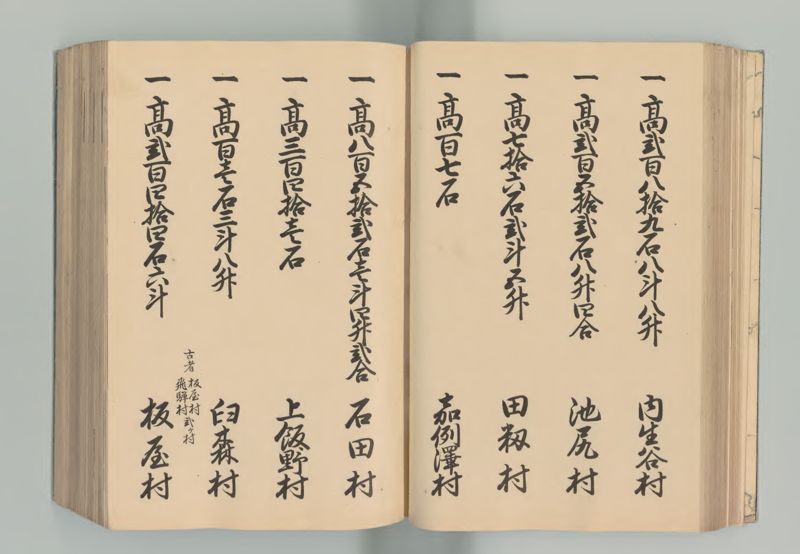 一 高弐百八拾九石八斗八升 内生谷村
一 高弐百五拾弐石八升四合 池尻村
一 高七拾六石弐斗五升 田籾村
一 高百七石 嘉例澤村
一 高八百五拾弐石壱斗四升弐合 石田村
一 高三百四拾壱石 上飯野村
一 高百壱石三斗八升 臼森村
古者 板屋村
飛騨村 弐ケ村
一 高弐百四拾四石六斗 板屋村